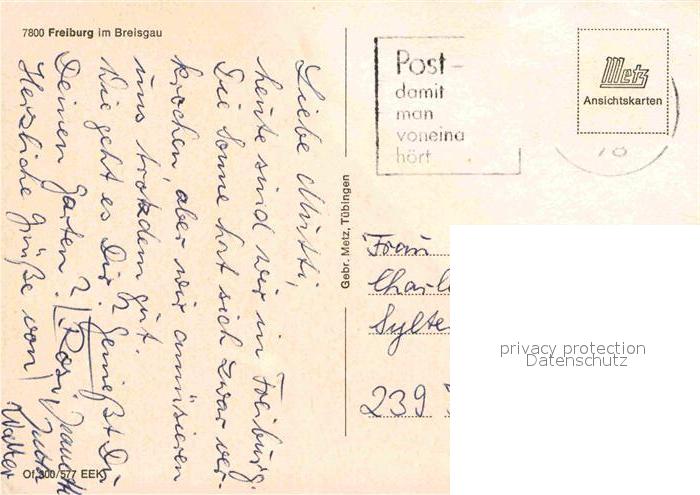 7800 Freiburg im Breisgau
Liebe Mutti,
heute sind wir in Freiburg.
Die Sonne hat sich zwar ver-
krochen, aber wir amüsieren
uns trotzdem gut.
Wie geht es Dir? Genießt Du
Deinen Garten?
Herzliche Grüße von
Rosi,
Jutta
Walter
Of 300/577 EEK
Gebr. Metz, Tübingen
Post-
damit
man
voneina
hört
Metz
Ansichtskarten
78
Frau
Charl
Sylte
239
privacy protection
Datenschutz